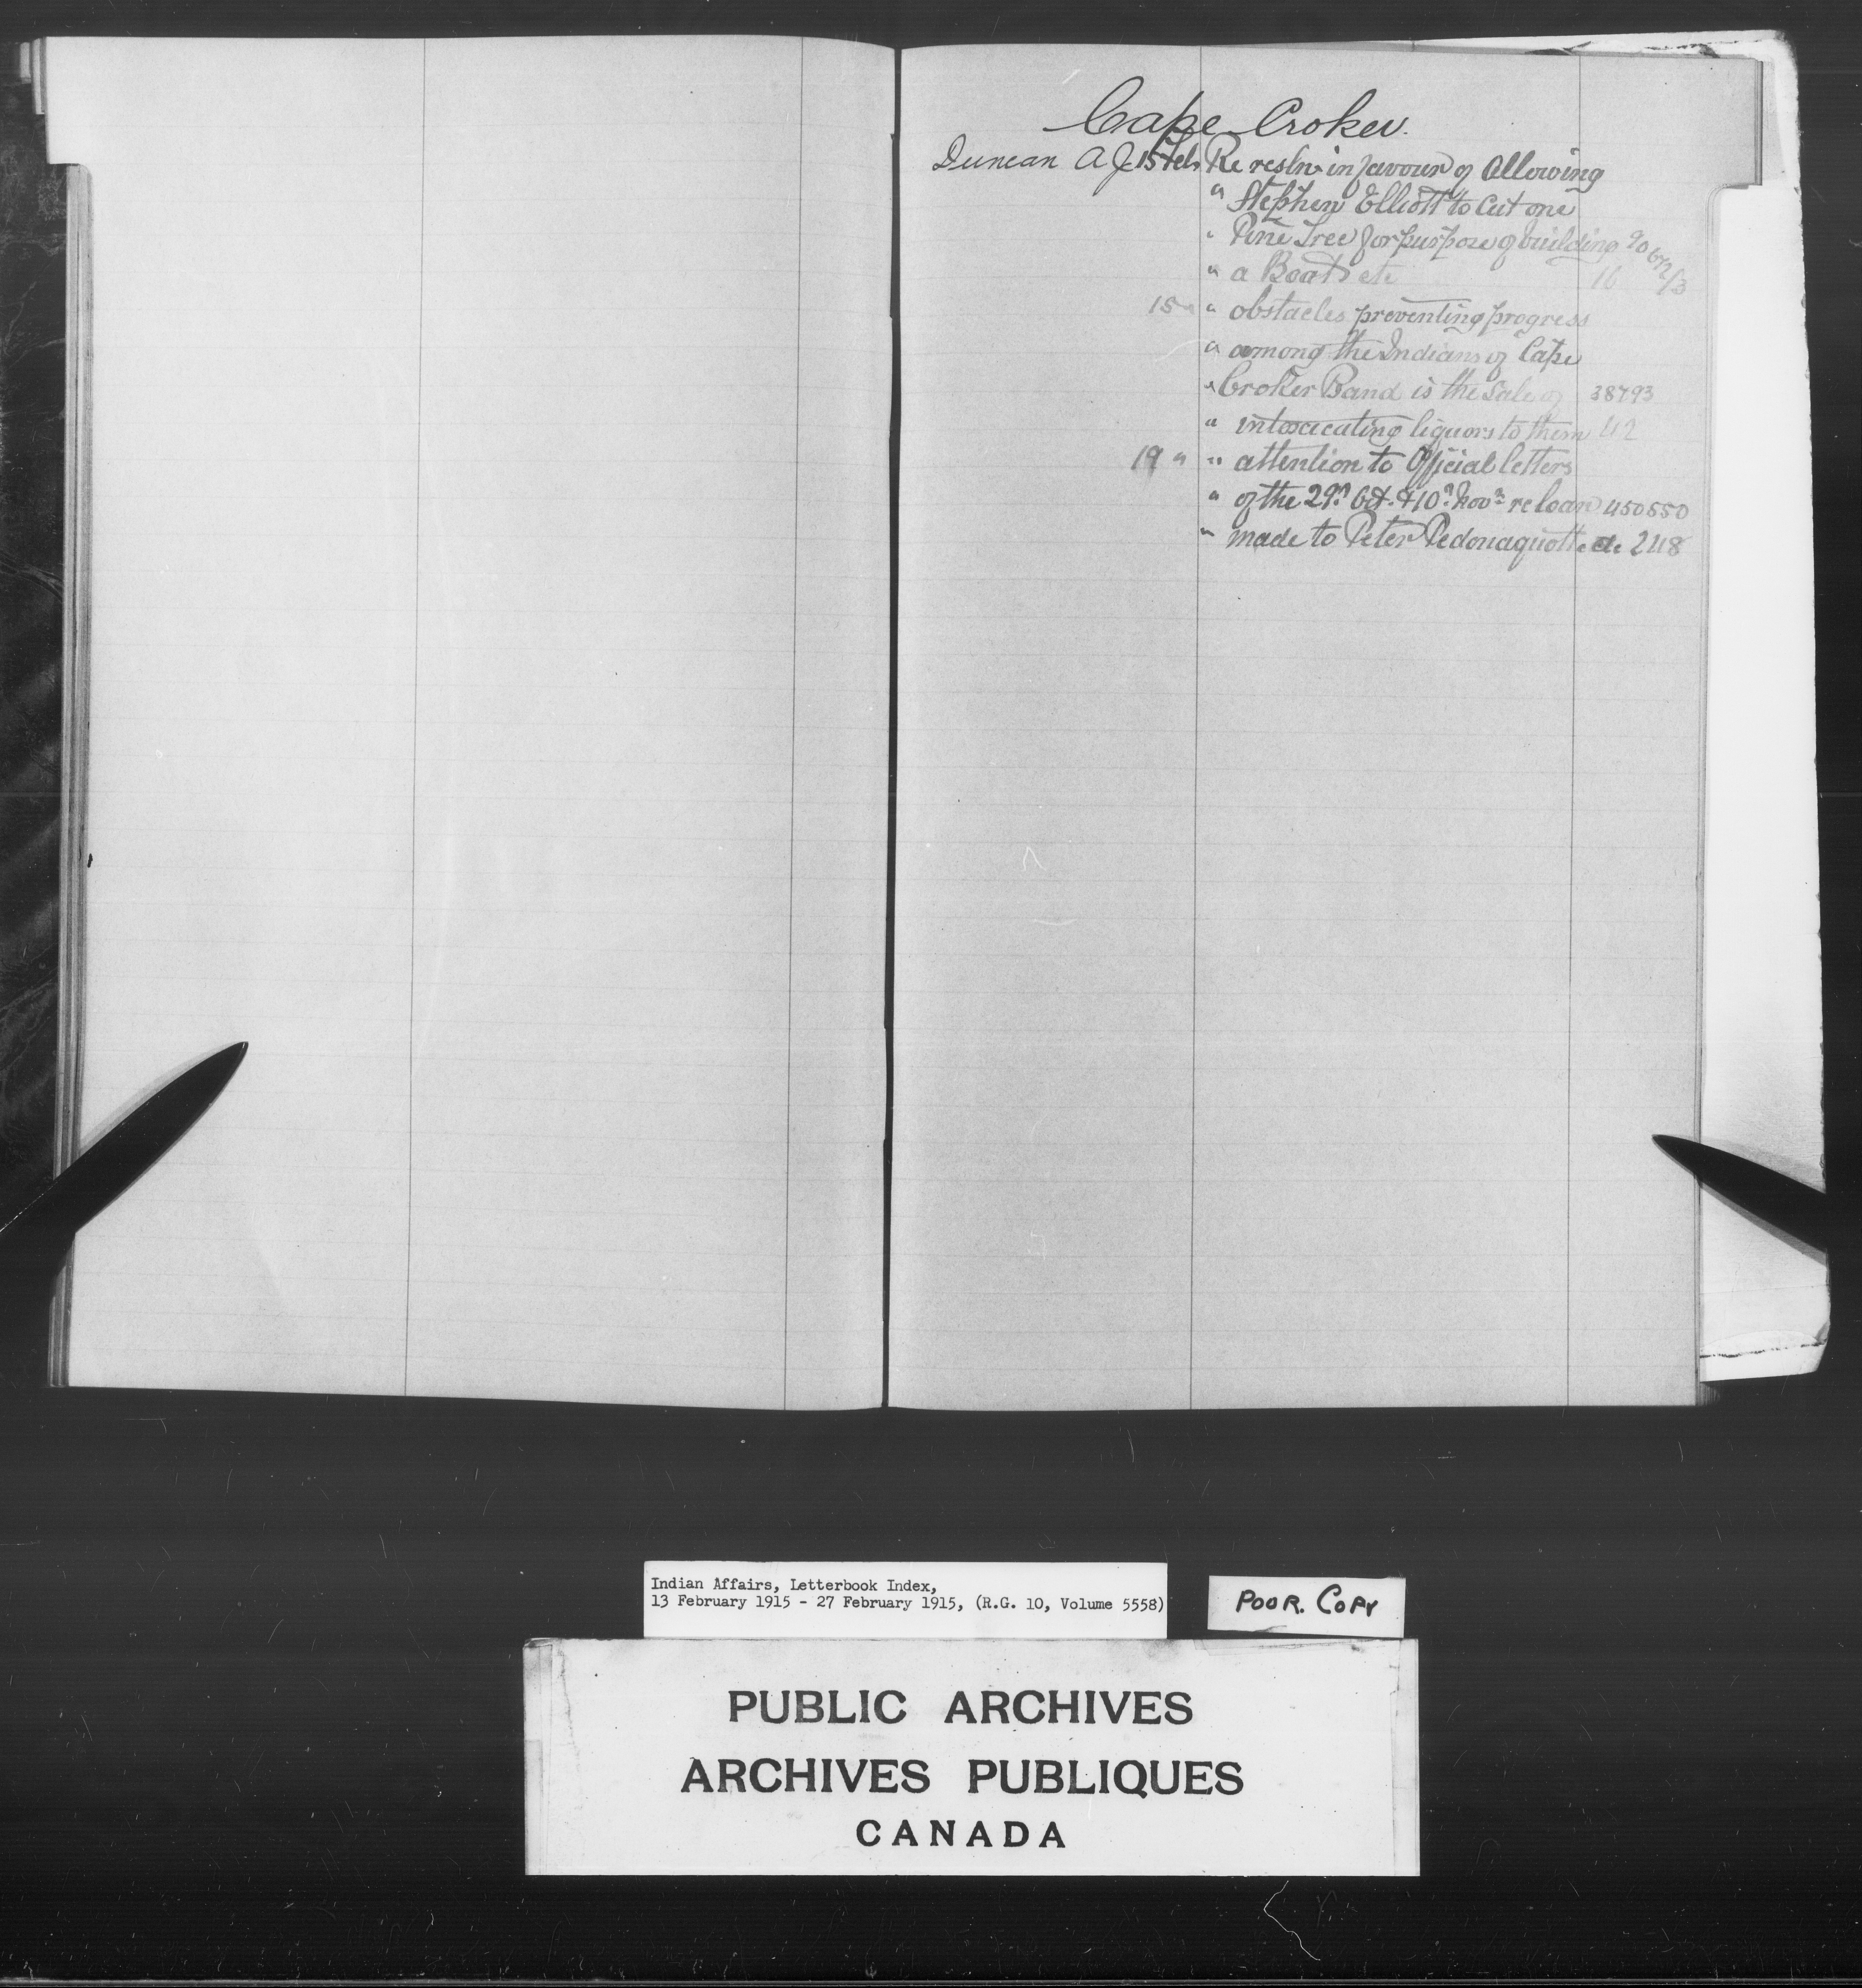 Cape Croker.
Duncan A J 15 Feb Re resln in favour of Allowing
" Stephen Elliott to Cut one
" Pine Tree for purpose of building 9067 2/3
" a Boat etc 16
15 " " obstacles preventing progress
" among the Indians of Cape
" Croker Band is the sale of 38793
" intoxicating liquors to them 42
19 " " attention to Official letters
" of the 29th Oct. & 10th Nov. re loan 450550
" made to Peter Pedonaquotte etc 248
Indian Affairs, Letterbook Index,
13 February 1915 - 27 February 1915, (R.G. 10, Volume 5558)
POOR. COPY
PUBLIC ARCHIVES
ARCHIVES PUBLIQUES
CANADA